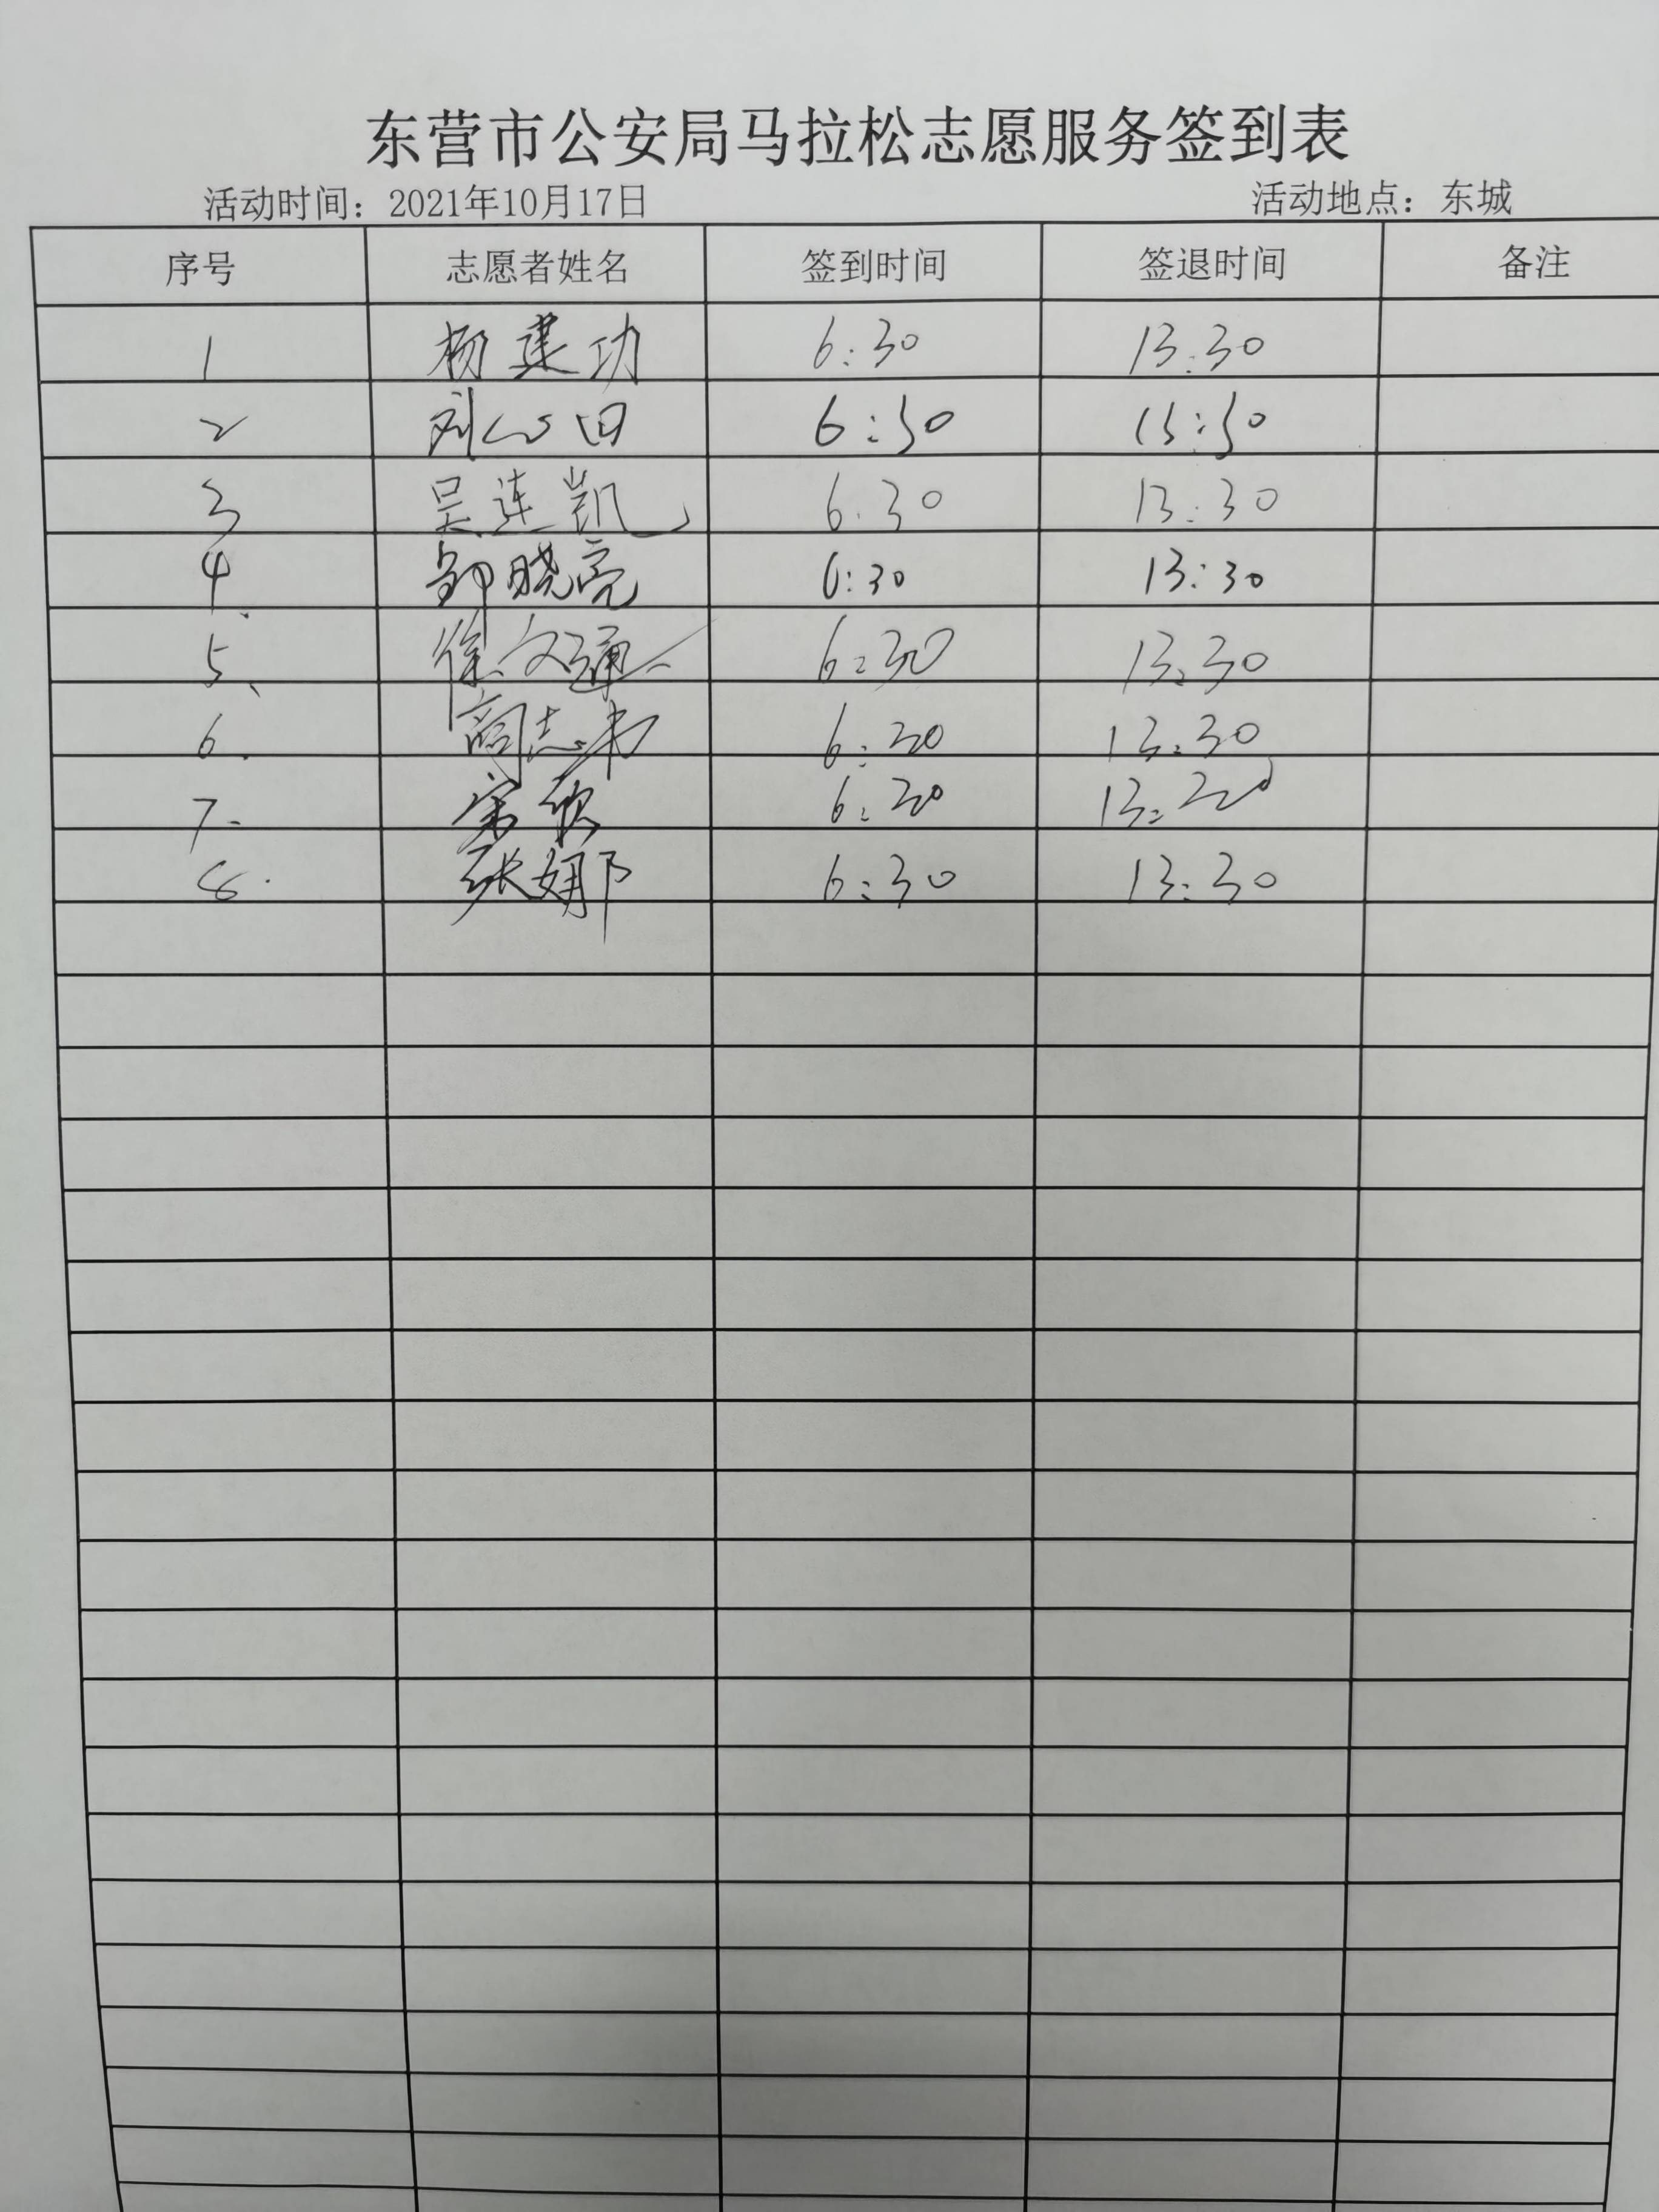 东营市公安局马拉松志愿服务签到表
活动时间：2021年10月17日 活动地点：东城
序号 志愿者姓名 签到时间 签退时间 备注
1 杨建功 6:30 13:30
2 刘心田 6:30 13:30
3 吴连凯 6:30 13:30
4 邹晓亮 6:30 13:30
5、 徐文通 6:30 13:30
6. 商志 6:30 13:30
7. 宋 6:30 13:30
8. 张娜 6:30 13:30